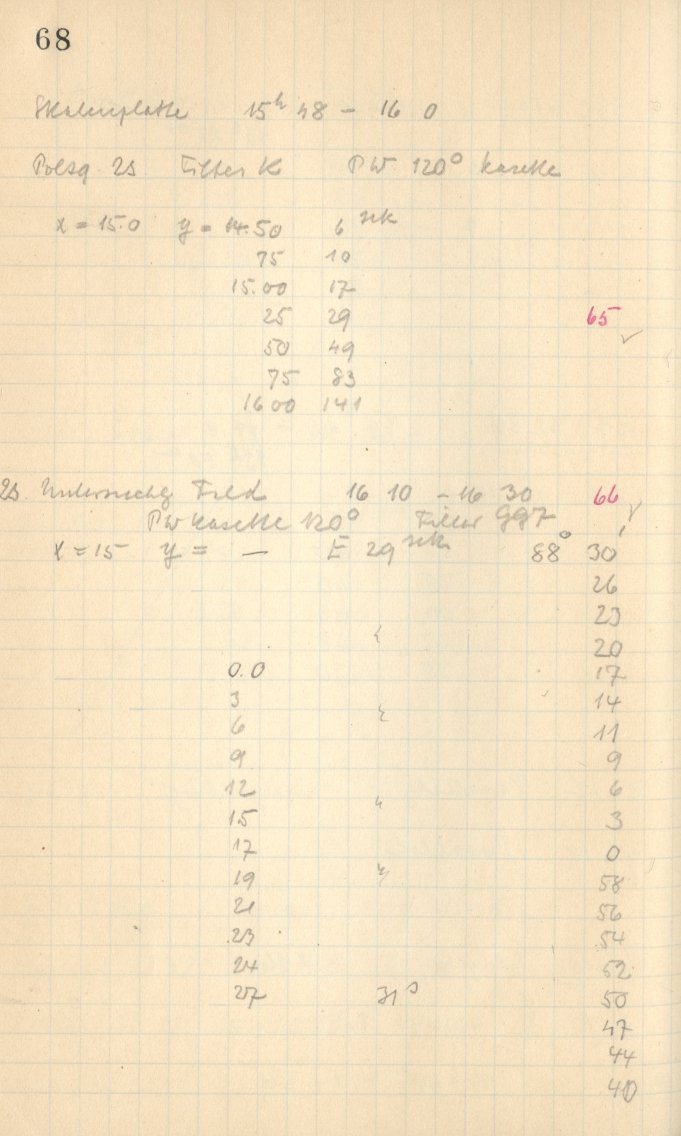 68
Skalenplatte 15h 48 - 16 0
Polsq. 2S Filter K PW 120° Kasette
x = 15.0 y = 14.50 6 sek
75 10
15.00 17
25 29 65
50 49
75 83
16 00 141
2S Feld 16 10 - 16 30 66
PW Kasette 120° Filter 997
x = 15 y = — E 29 sek 88° 30'
26
23
20
0.0 17
3 14
6 11
9 9
12 6
15 3
17 0
19 58
21 56
23 54
24 52
27 31s 50
47
44
40